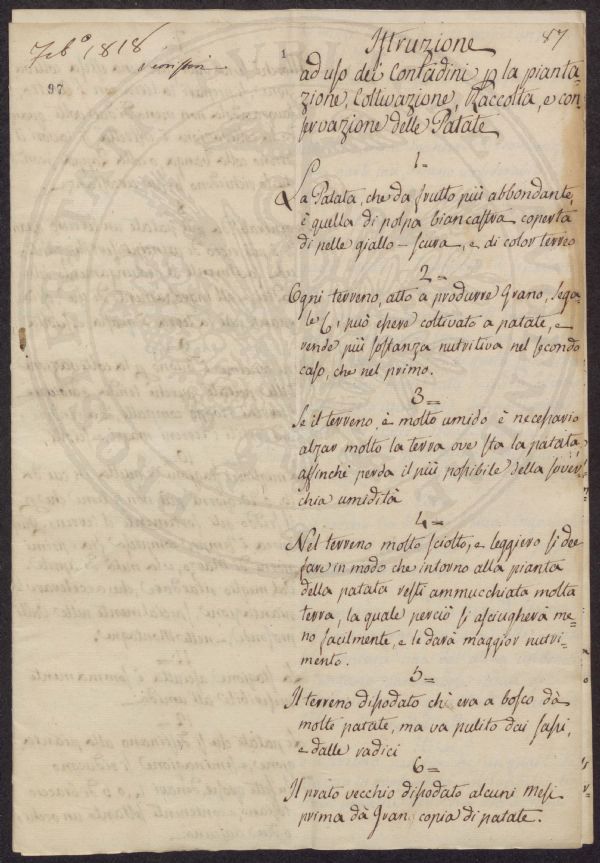 Feb.º 1818
97
1
87
Istruzione
ad uso dei Contadini p la pianta-
zione, Coltivazione, Raccolta, e con
servazione delle Patate
1=
La Patata, che da frutto più abbondante,
è quella di polpa biancastra coperta
di pelle giallo-scura, e di color terreo
2=
Ogni terreno, atto a produrre Grano, Sega-
le &, può essere coltivato a patate, e
rende più sostanza nutritiva nel secondo
caso, che nel primo.
3=
Se il terreno è molto umido è necessario
alzar molto la terra ove sta la patata,
affinchè perda il più possibile della sover
chia umidità
4=
Nel terreno molto sciolto, e leggiero si dee
fare in modo che intorno alla pianta
della patata resti ammucchiata molta
terra, la quale perciò si asciugherà me-
no facilmente, e le darà maggior nutri-
mento.
5=
Il terreno dissodato ch' era a bosco dà
molte patate, ma va pulito dai sassi,
e dalle radici
6=
Il prato vecchio dissodato alcuni mesi
prima dà Gran copia di patate.